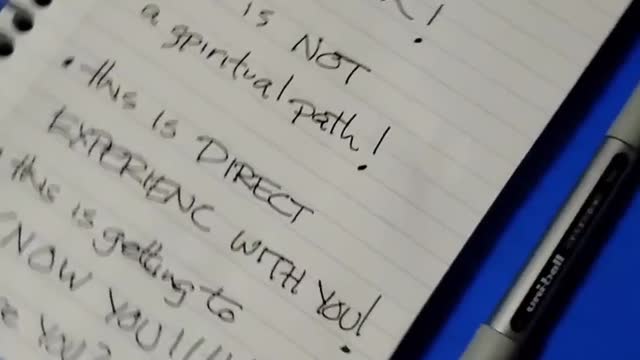 !
is NOT
a spiritual path!
• this is DIRECT
EXPERIENC WITH YOU!
• this is getting to
KNOW YOU!
YOU?
uniball